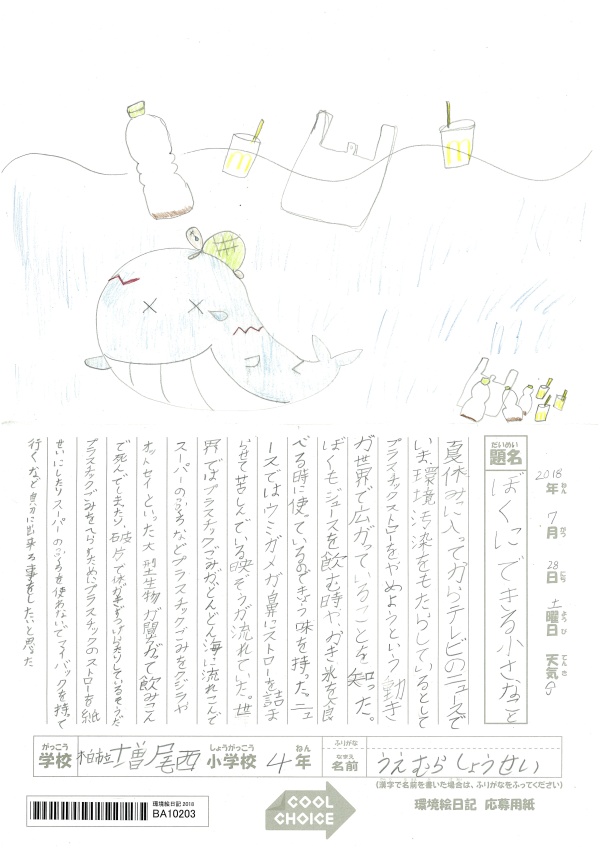 2018年ねん 7月がつ 28日にち 土曜日ようび 天気てんき
題名だいめい ぼくにできる小さなこと
夏休みに入ってからテレビのニュースで
いま、環境汚染をもたらしているとして
プラスチックストローをやめようという動き
が世界で広がっていることを知った。
ぼくもジュースを飲む時や、かき氷を食
べる時に使っているのできょう味を持った。ニュ
ースではウミガメが鼻にストローを詰ま
らせて苦しんでいる映ぞうが流れていた。世
界ではプラスチックごみがどんどん海に流れこんで
スーパーのふくろなどプラスチックごみをクジラや
オットセイといった大型生物が間ちがって飲みこん
で死んでしまったり、破片で体がきずつけられたりしているそうだ。
プラスチックごみをへらすためにプラスチックのストローを紙
せいにしたりスーパーのふくろを使わないでマイバックを持って
行くなど自分に出来る事をしたいと思った
学校がっこう 柏市立増尾西 小学校しょうがっこう 4年ねん
ふりがな
名前なまえ うえむら しょうせい
(漢字で名前を書いた場合は、ふりがなをふってください)
環境絵日記2018
BA10203
COOL
CHOICE
環境絵日記 応募用紙